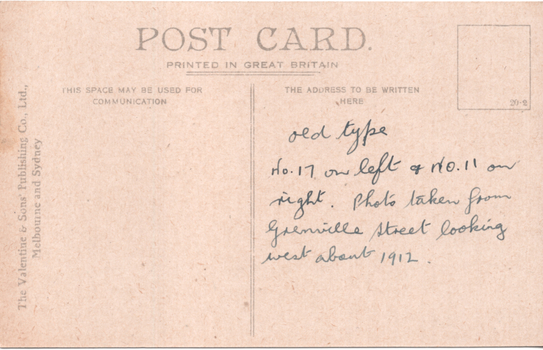 POST CARD.
PRINTED IN GREAT BRITAIN
THIS SPACE MAY BE USED FOR
COMMUNICATION
THE ADDRESS TO BE WRITTEN
HERE
20-2
The Valentine & Sons' Publishing Co., Ltd.,
Melbourne and Sydney
old type
No. 17 on left & No. 11 on
right. Photo taken from
Grenville Street looking
west about 1912.